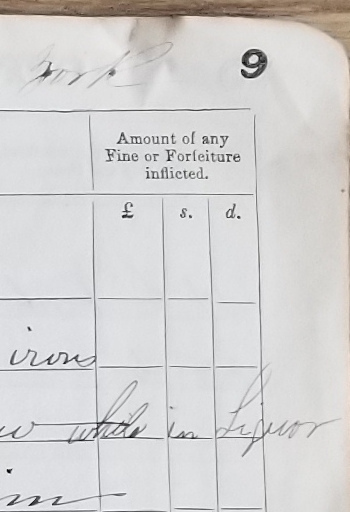 9
York
Amount of any
Fine or Forfeiture
inflicted.
£ s. d.
irons
while in Liquor